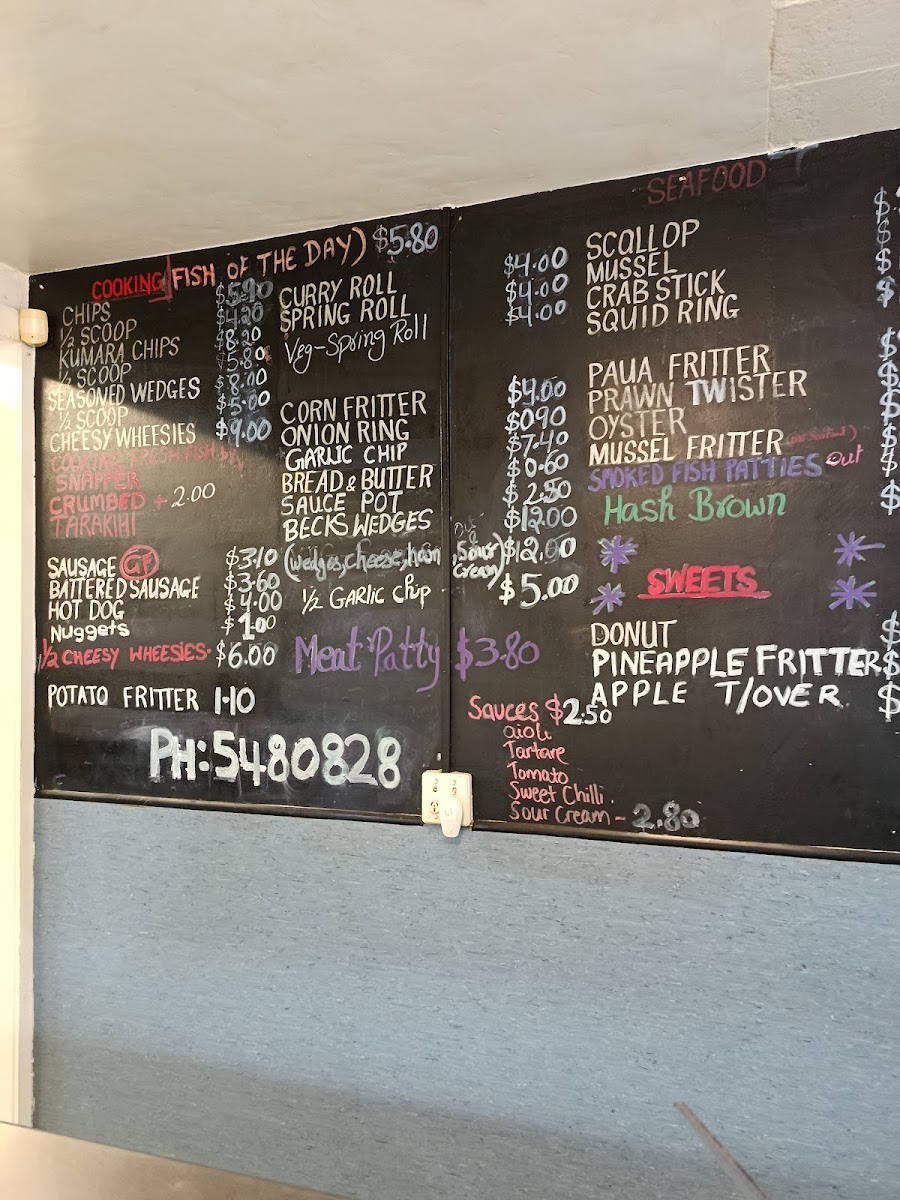 COOKING (FISH OF THE DAY) $5.80
CHIPS $5.90
1/2 SCOOP $4.20
KUMARA CHIPS $8.20
1/2 SCOOP $5.80
SEASONED WEDGES $8.00
1/2 SCOOP $5.00
CHEESY WHEESIES $9.00
COOKING FRESH FISH
SNAPPER
CRUMBED + 2.00
TARAKIHI
SAUSAGE GF $3.10
BATTERED SAUSAGE $3.60
HOT DOG $4.00
Nuggets $1.00
1/2 CHEESY WHEESIES. $6.00
POTATO FRITTER 1.10
PH: 5480828
CURRY ROLL $4.00
SPRING ROLL $4.00
Veg-Spring Roll $4.00
CORN FRITTER $4.00
ONION RING $0.90
GARLIC CHIP $7.40
BREAD & BUTTER $0.60
SAUCE POT $2.50
BECKS WEDGES $12.00
(wedges, cheese, ham, Sour Cream) $12.00
1/2 GARLIC Chip $5.00
Meat Patty $3.80
Sauces $2.50
aioli
Tartare
Tomato
Sweet Chilli.
Sour Cream - 2.80
SEAFOOD
SCOLLOP $
MUSSEL $
CRAB STICK $
SQUID RING $
PAUA FRITTER $
PRAWN TWISTER $
OYSTER $
MUSSEL FRITTER $
SMOKED FISH PATTIES Out $
Hash Brown $
SWEETS
DONUT $
PINEAPPLE FRITTER $
APPLE T/OVER $